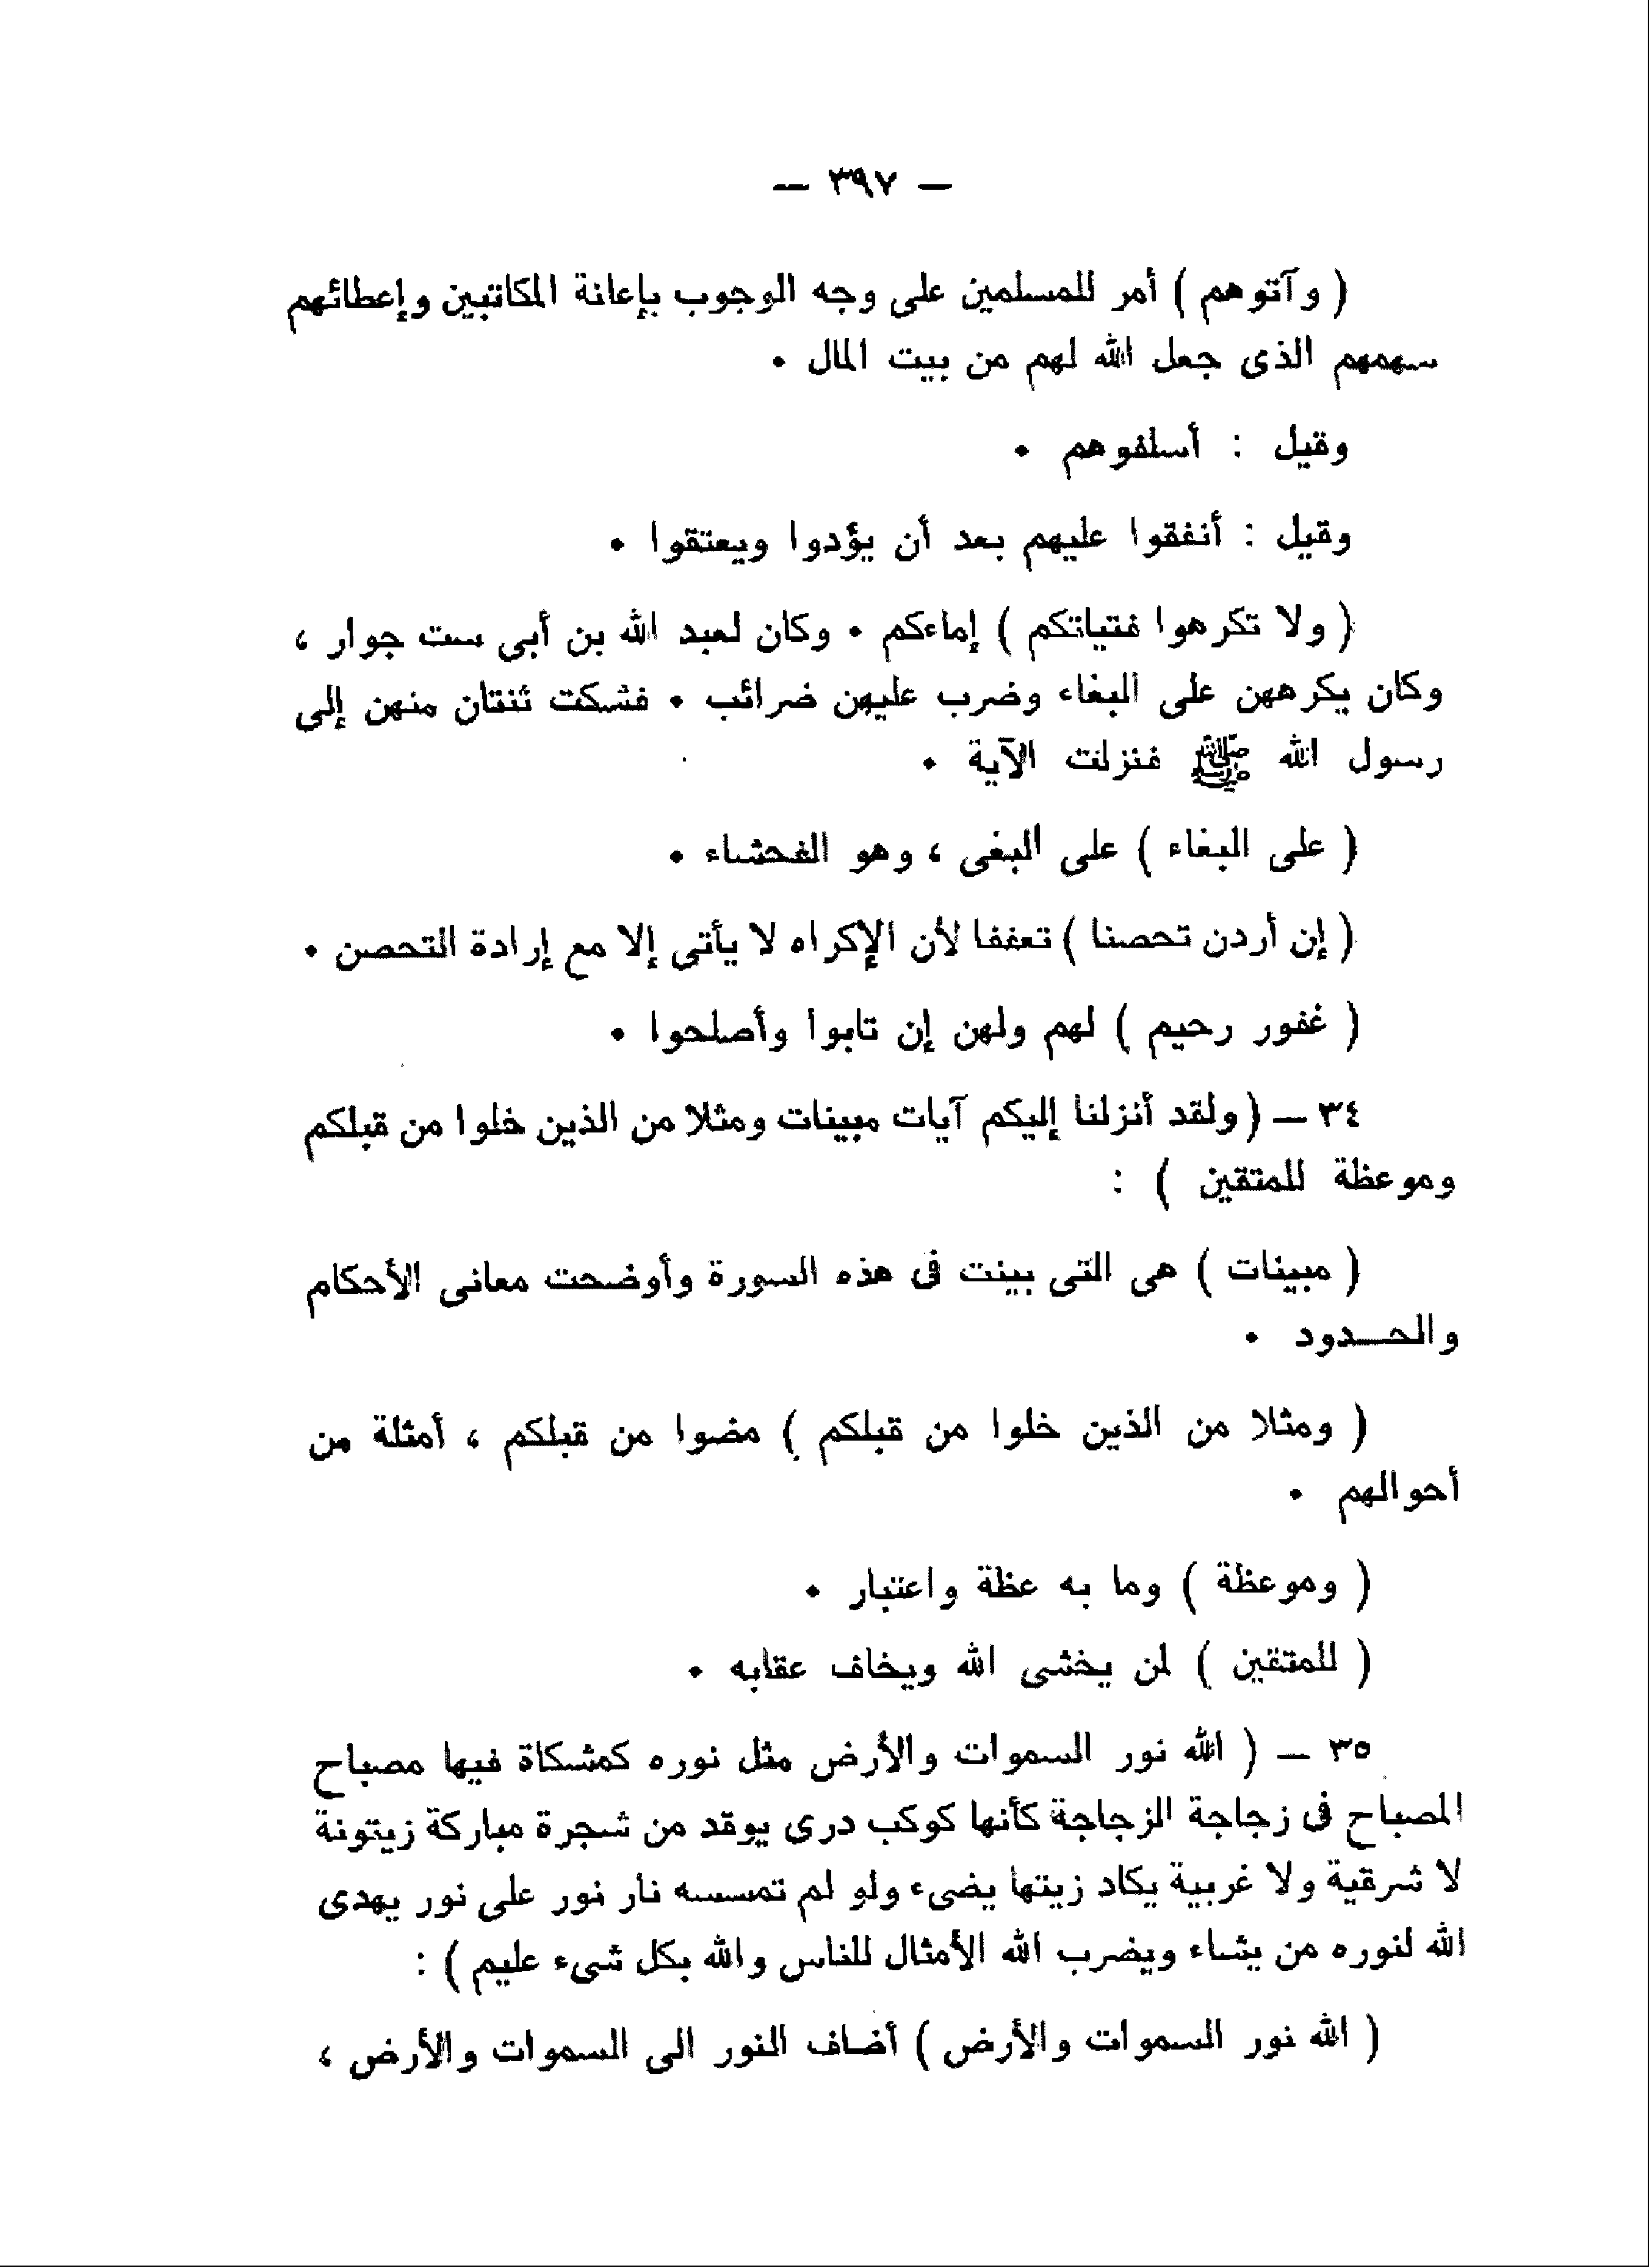 — ٣٩٧ —
( وآتوهم ) أمر للمسلمين على وجه الوجوب بإعانة المكاتبين وإعطائهم
سهمهم الذى جعل الله لهم من بيت المال .
وقيل : أسلفوهم .
وقيل : أنفقوا عليهم بعد أن يؤدوا ويعتقوا .
( ولا تكرهوا فتياتكم ) إماءكم . وكان لعبد الله بن أبى ست جوار ،
وكان يكرههن على البغاء وضرب عليهن ضرائب . فشكت ثنتان منهن إلى
رسول الله ﷺ فنزلت الآية .
( على البغاء ) على البغى ، وهو الفحشاء .
( إن أردن تحصنا ) تعففا لأن الإكراه لا يأتى إلا مع إرادة التحصن .
( غفور رحيم ) لهم ولهن إن تابوا وأصلحوا .
٣٤ — ( ولقد أنزلنا إليكم آيات مبينات ومثلا من الذين خلوا من قبلكم
وموعظة للمتقين ) :
( مبينات ) هى التى بينت فى هذه السورة وأوضحت معانى الأحكام
والحــدود .
( ومثلا من الذين خلوا من قبلكم ) مضوا من قبلكم ، أمثلة من
أحوالهم .
( وموعظة ) وما به عظة واعتبار .
( للمتقين ) لمن يخشى الله ويخاف عقابه .
٣٥ — ( الله نور السموات والأرض مثل نوره كمشكاة فيها مصباح
المصباح فى زجاجة الزجاجة كأنها كوكب درى يوقد من شجرة مباركة زيتونة
لا شرقية ولا غربية يكاد زيتها يضىء ولو لم تمسسه نار نور على نور يهدى
الله لنوره من يشاء ويضرب الله الأمثال للناس والله بكل شىء عليم ) :
( الله نور السموات والأرض ) أضاف النور الى السموات والأرض ،